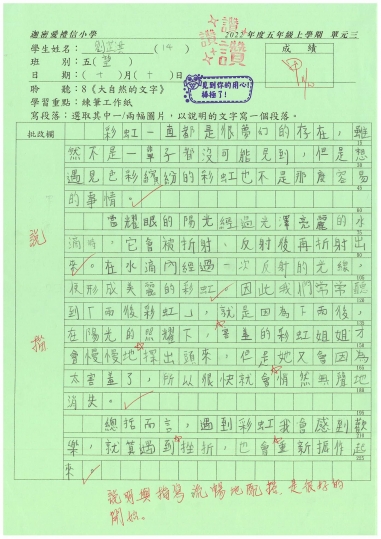 迦密愛禮信小學
2022年度五年級上學期 單元三
讚 讚 讚
學生姓名：(14)
成績
班 別：五(望)
甲
日 期：(十)月(十)日
見到你的用心！
棒極了！
聆 聽：8《大自然的文字》
學習重點：練筆工作紙
寫段落：選取其中一/兩幅圖片，以說明的文字寫一個段落。
批改欄
彩虹一直都是很夢幻的存在，雖
然不是一輩子都沒可能見到，但是想
遇見色彩繽紛的彩虹也不是那麼容易
的事情。
當耀眼的陽光經過光澤亮麗的水
滴時，它會被折射、反射後再折射出
來。在水滴內經過一次反射的光線，
便形成美麗的彩虹。因此我們常常聽
到「雨後彩虹」，就是因為下雨後，
在陽光的照耀下，害羞的彩虹姐姐才
會慢慢地探出頭來，但是她又會因為
太害羞了，所以很快就會悄然無聲地
消失。
總括而言，遇到彩虹我會感到歡
樂，就算遇到挫折，也會重新振作起
來。
說
描
說明與描寫流暢地配搭，是很好的
開始。